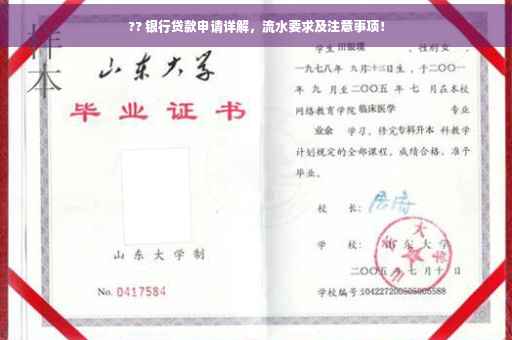 ?? 银行贷款申请详解，流水要求及注意事项！
样本
山东大学
毕业证书
山东大学制
No. 0417584
学生 性别女，
一九七八年 九月十三日生，于二〇〇一
年 九 月至二〇〇五 年 七 月在本校
网络教育学院临床医学 专业
业余 学习，修完专科升本 科教学
计划规定的全部课程，成绩合格，准予
毕业。
校 长：
学 校：山东大学
二〇〇五 年 七 月 十 日
学校编号:104227200505005588